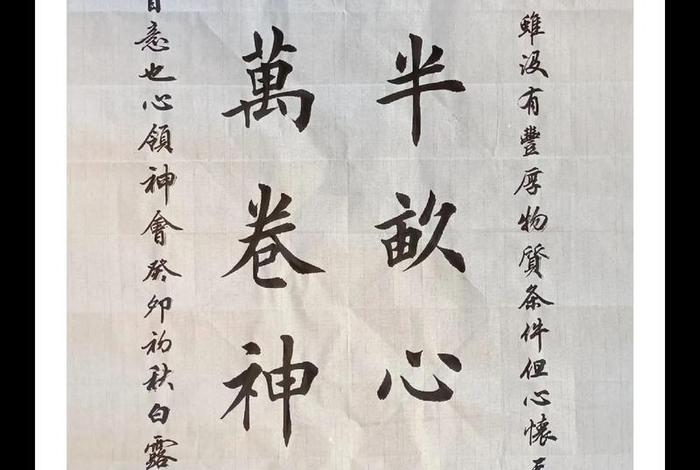 雖没有豐厚物質条件但心懷
半畝心
萬卷神
意也心領神會癸卯初秋白露